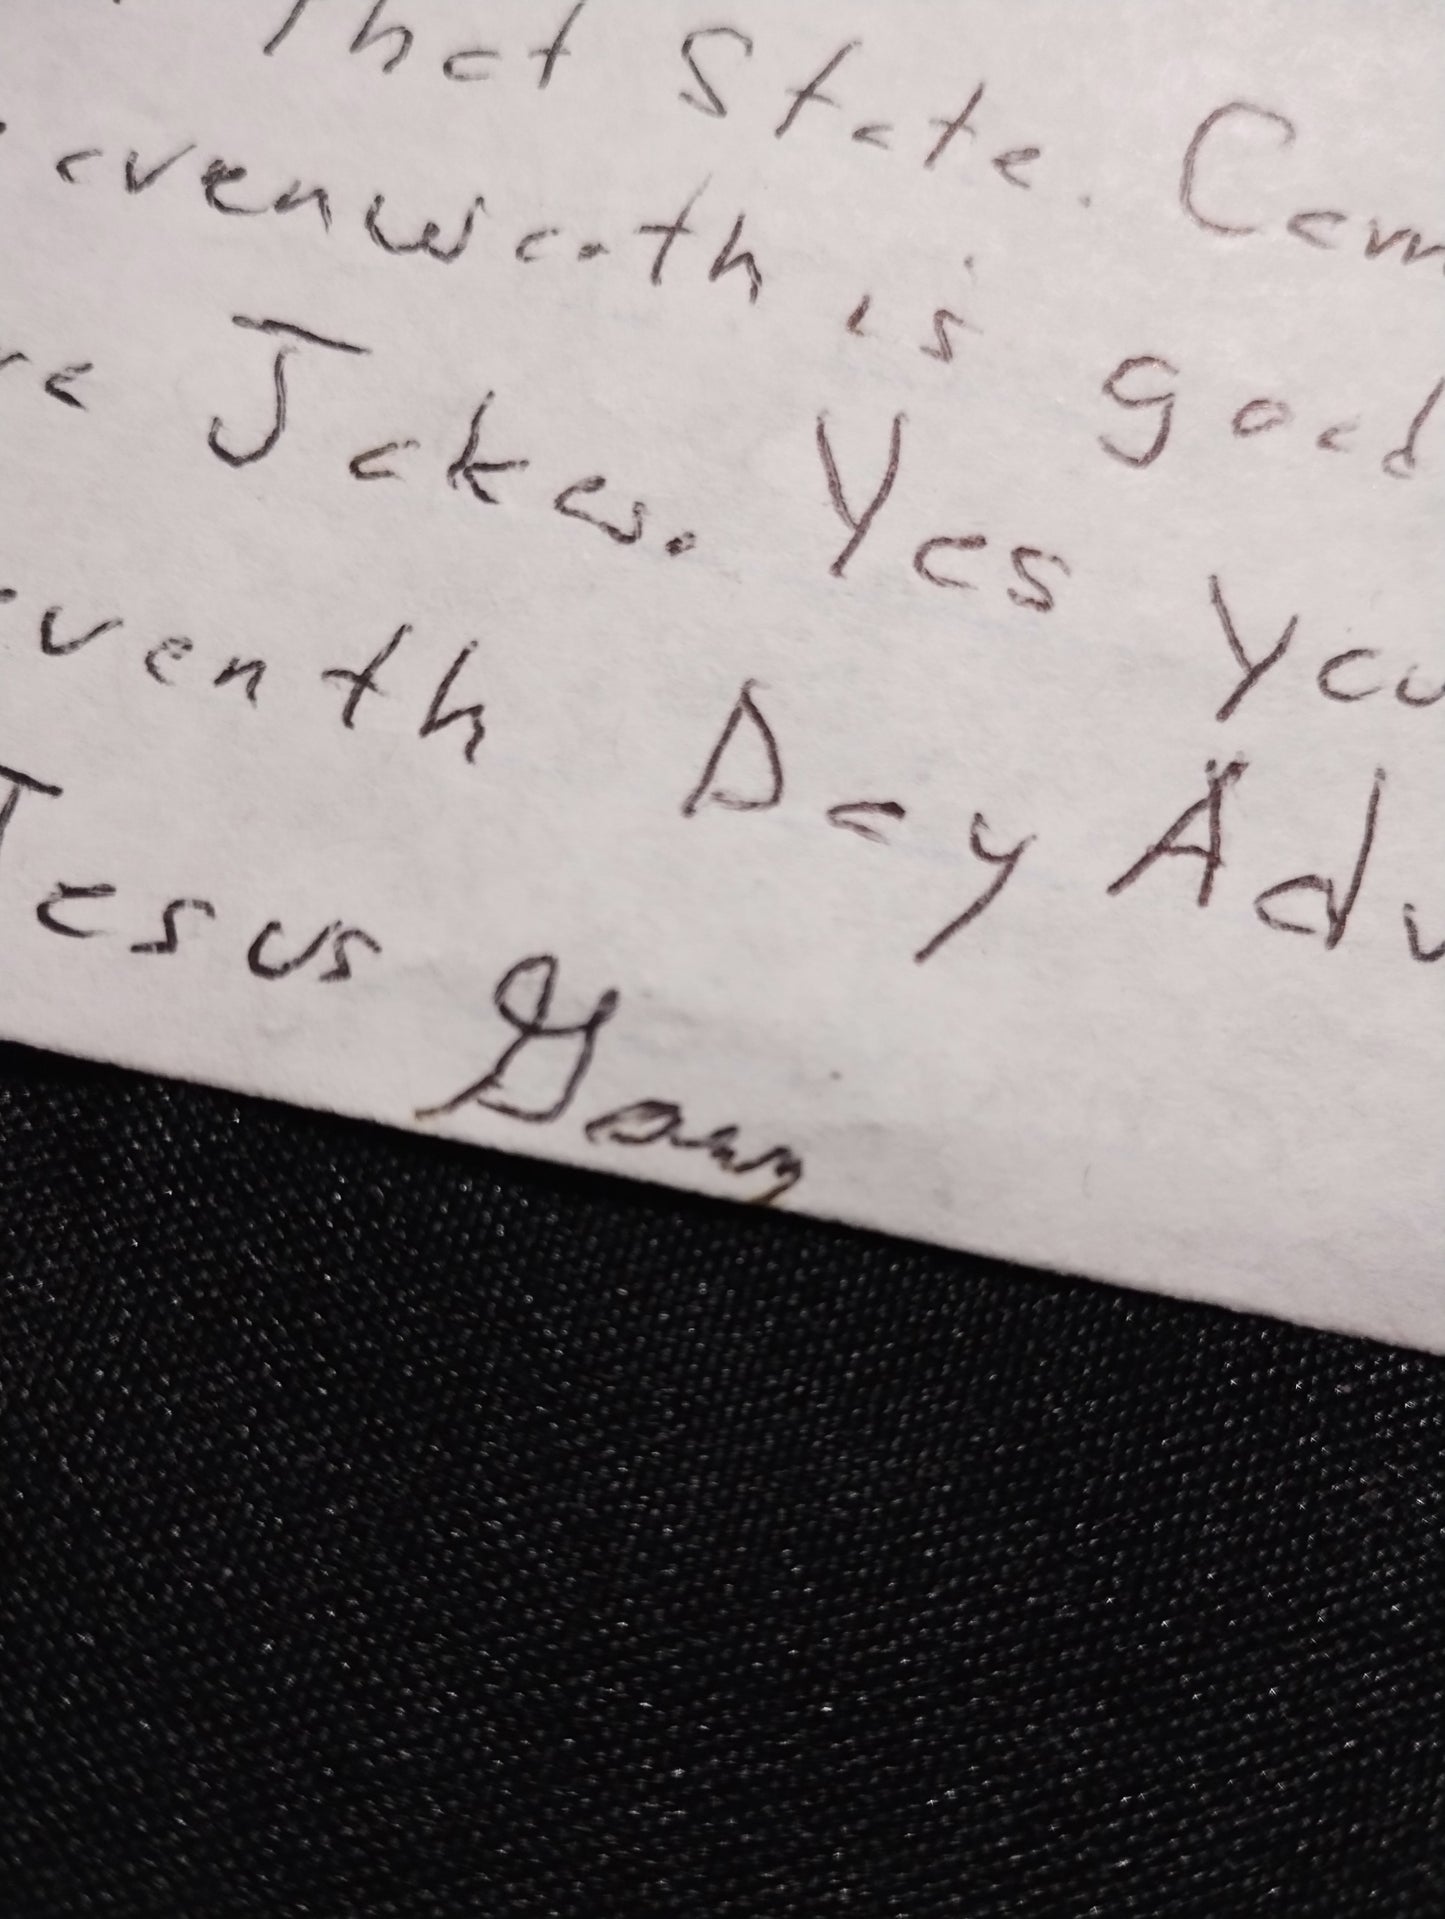 That State. Cam
avenworth is good
re Jakes. Yes you
venth Day Adv
Jesus